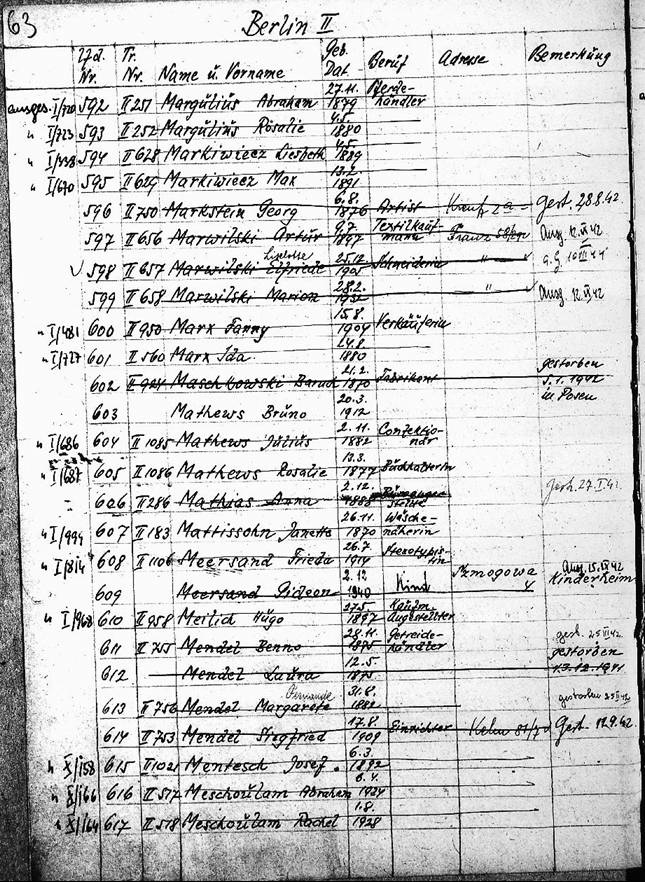 63
Berlin II
Lfd. Nr. Tr. Nr. Name u. Vorname Geb. Dat. Beruf Adresse Bemerkung
ausges. I/720 592 II 251 Margulius Abraham 27.11. 1879 Pferde-händler
" I/723 593 II 252 Margulius Rosalie 4.5. 1880
" I/338 594 II 628 Markiwiecz Liesbeth 4.5. 1889
" I/670 595 II 629 Markiwiecz Max 13.2. 1891
596 II 750 Markstein Georg 6.8. 1876 Artist gest. 28.8.42
597 II 656 Marwilski Artur 9.7. 1897 Textilkauf-mann Franz Ausg. 12.IX 42
598 II 657 Marwilski Elfriede Liselotte 25.12. 1905 Schneiderin "
599 II 658 Marwilski Marion 28.2. 1932 " Ausg. 12.IX 42
" I/481 600 II 950 Marx Fanny 15.8. 1909 Verkäuferin
" I/727 601 II 560 Marx Ida 24.8. 1880
602 II 924 Maschkowski Baruch 21.2. 1870 Fabrikant gestorben 5.1.1942 in Posen
603 Mathews Bruno 20.3. 1912
" I/686 604 II 1085 Mathews Julius 2.11. 1882 Confektio-när
" I/687 605 II 1086 Mathews Rosalie 13.3. 1877 Buchhalterin
606 II 286 Mathias Anna 2.12. 1880 Büroange-stellte
" I/994 607 II 183 Mattissohn Janette 26.11. 1870 Wäsche-näherin
" I/814 608 II 1106 Meersand Frieda 26.7. 1914 Stenotypis-tin
609 Meersand Gideon 2.12 1940 Kind Kinderheim
" I/968 610 II 958 Meilid Hugo 27.5. 1897 Kaufm. Angestellter
611 II 755 Mendel Benno 28.11. 1875 Getreide-händler
612 Mendel Laura 12.5. 1875 gestorben 13.12.1941
613 II 756 Mendel Margarete 31.8. 1882
614 II 753 Mendel Siegfried 17.8. 1909 Einrichter Gest. 12.9.42.
" X/158 615 II 1021 Mentesch Josef 6.3. 1892
" X/166 616 II 517 Meschoulam Abraham 6.4. 1924
" X/164 617 II 518 Meschoulam Rachel 1.8. 1928